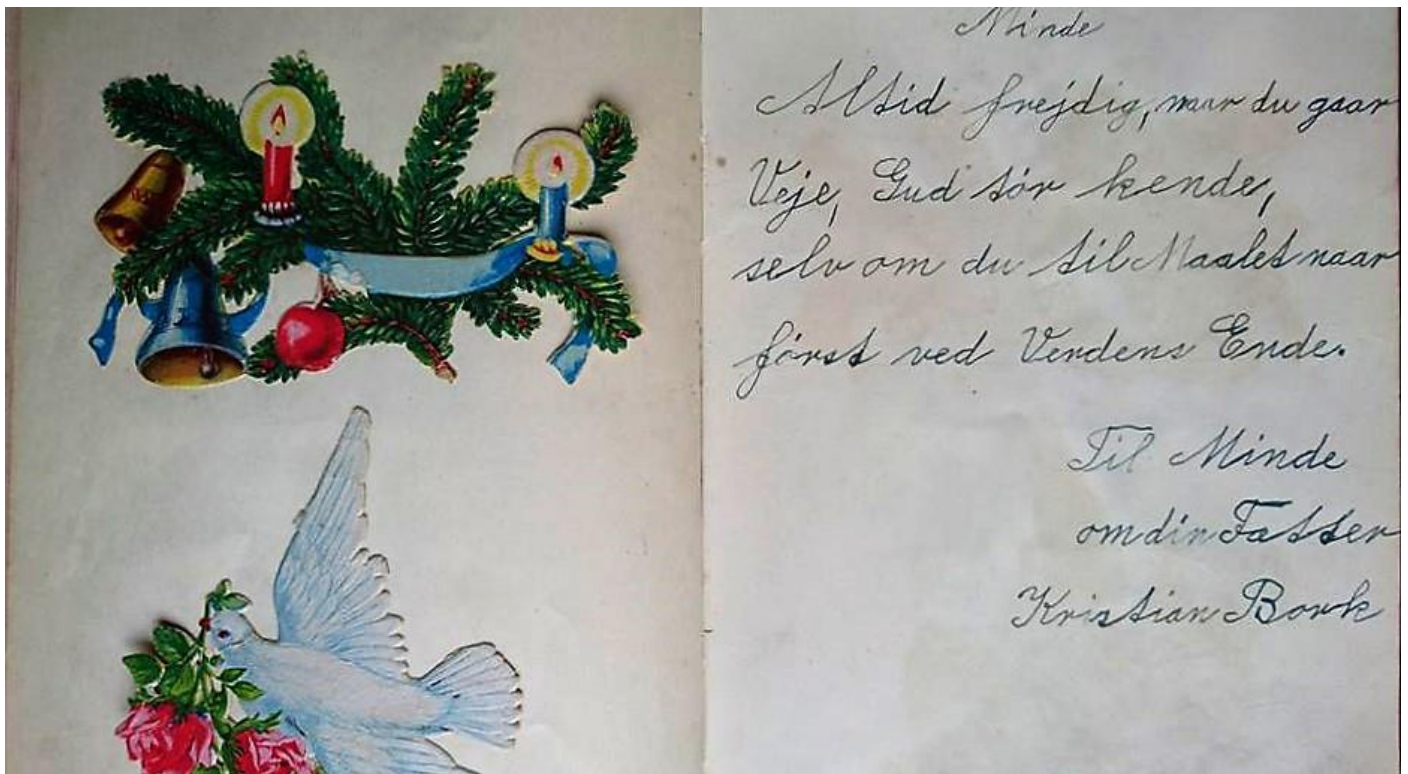 Minde
Altid frejdig, naar du gaar
Veje, Gud tör kende,
selv om du til Maalet naar
först ved Verdens Ende.
Til Minde
om din Fætter
Kristian Bork